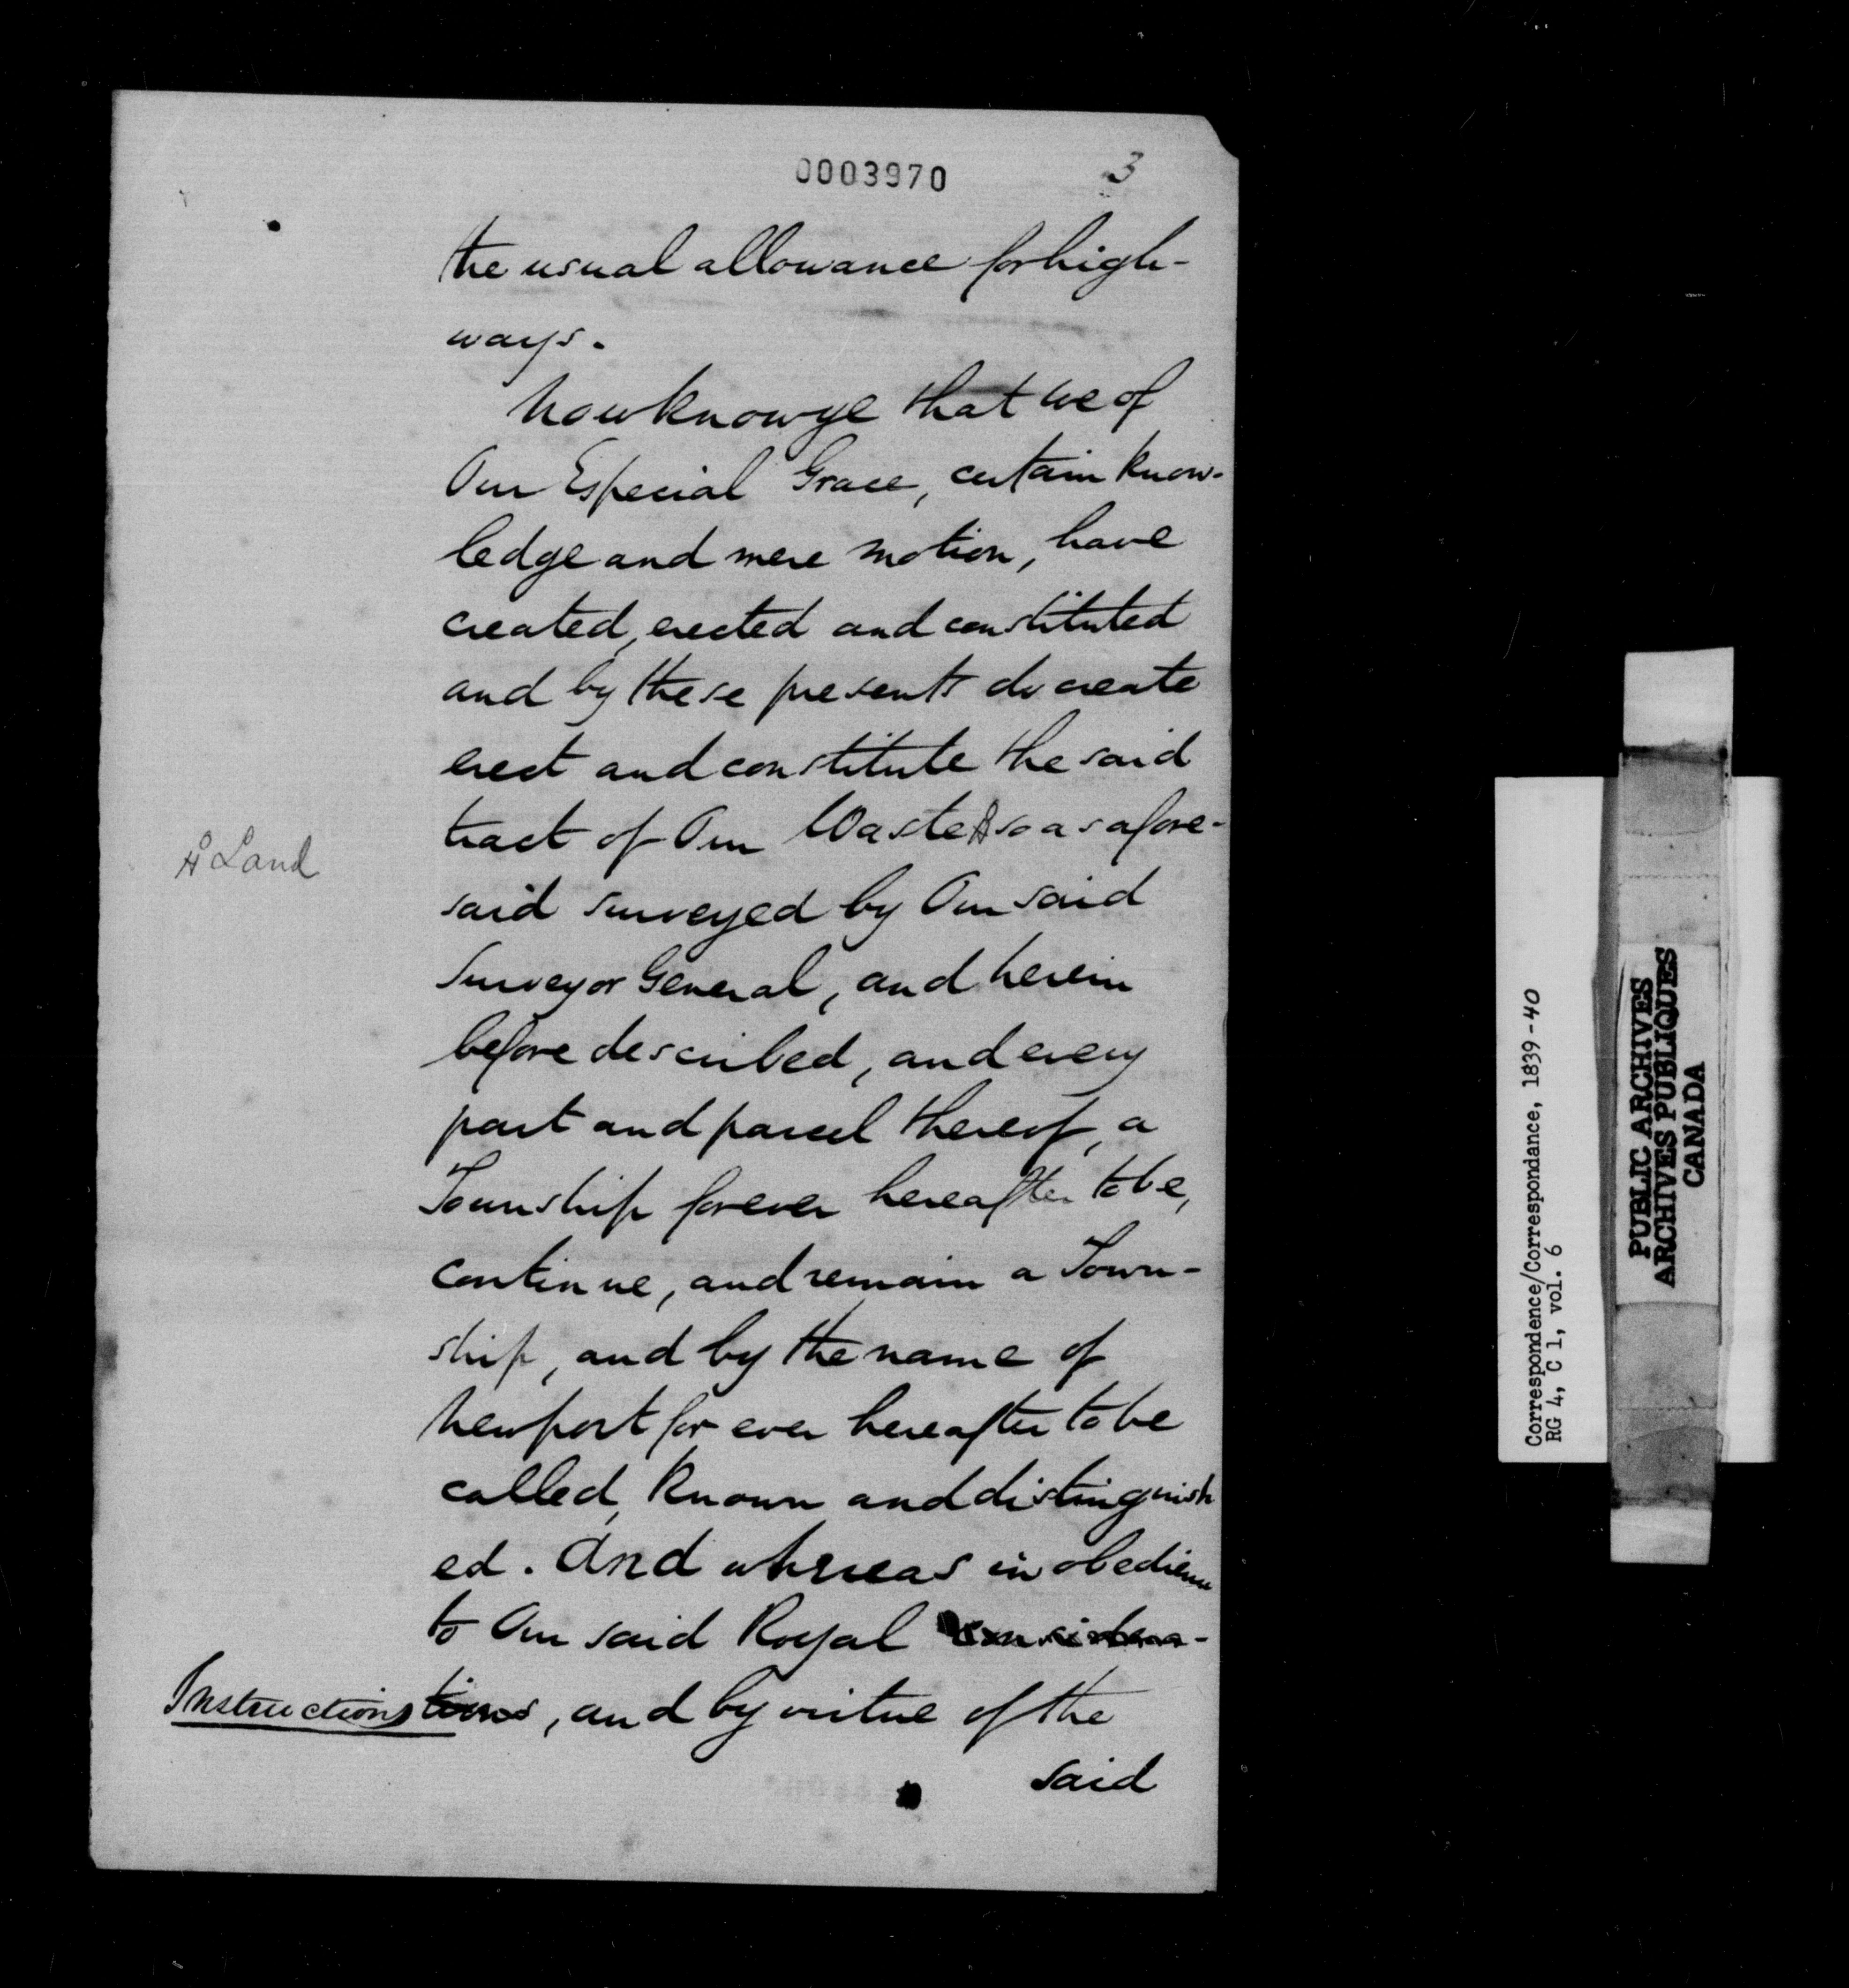 0003970
3
the usual allowance for high-
ways.
Now know ye that we of
Our Especial Grace, certain know-
ledge and mere motion, have
created, erected and constituted
and by these presents do create
erect and constitute the said
tract of Our Waste so as afore-
Land
said surveyed by Our said
Surveyor General, and herein
before described, and every
part and parcel thereof, a
Township forever hereafter to be,
continue, and remain a Town-
ship, and by the name of
Newport for ever hereafter to be
called, known and distinguish
ed. And whereas in obedience
to Our said Royal
Instructions tions, and by virtue of the
said
Correspondence/Correspondance, 1839-40
RG 4, C 1, vol. 6
PUBLIC ARCHIVES
ARCHIVES PUBLIQUES
CANADA